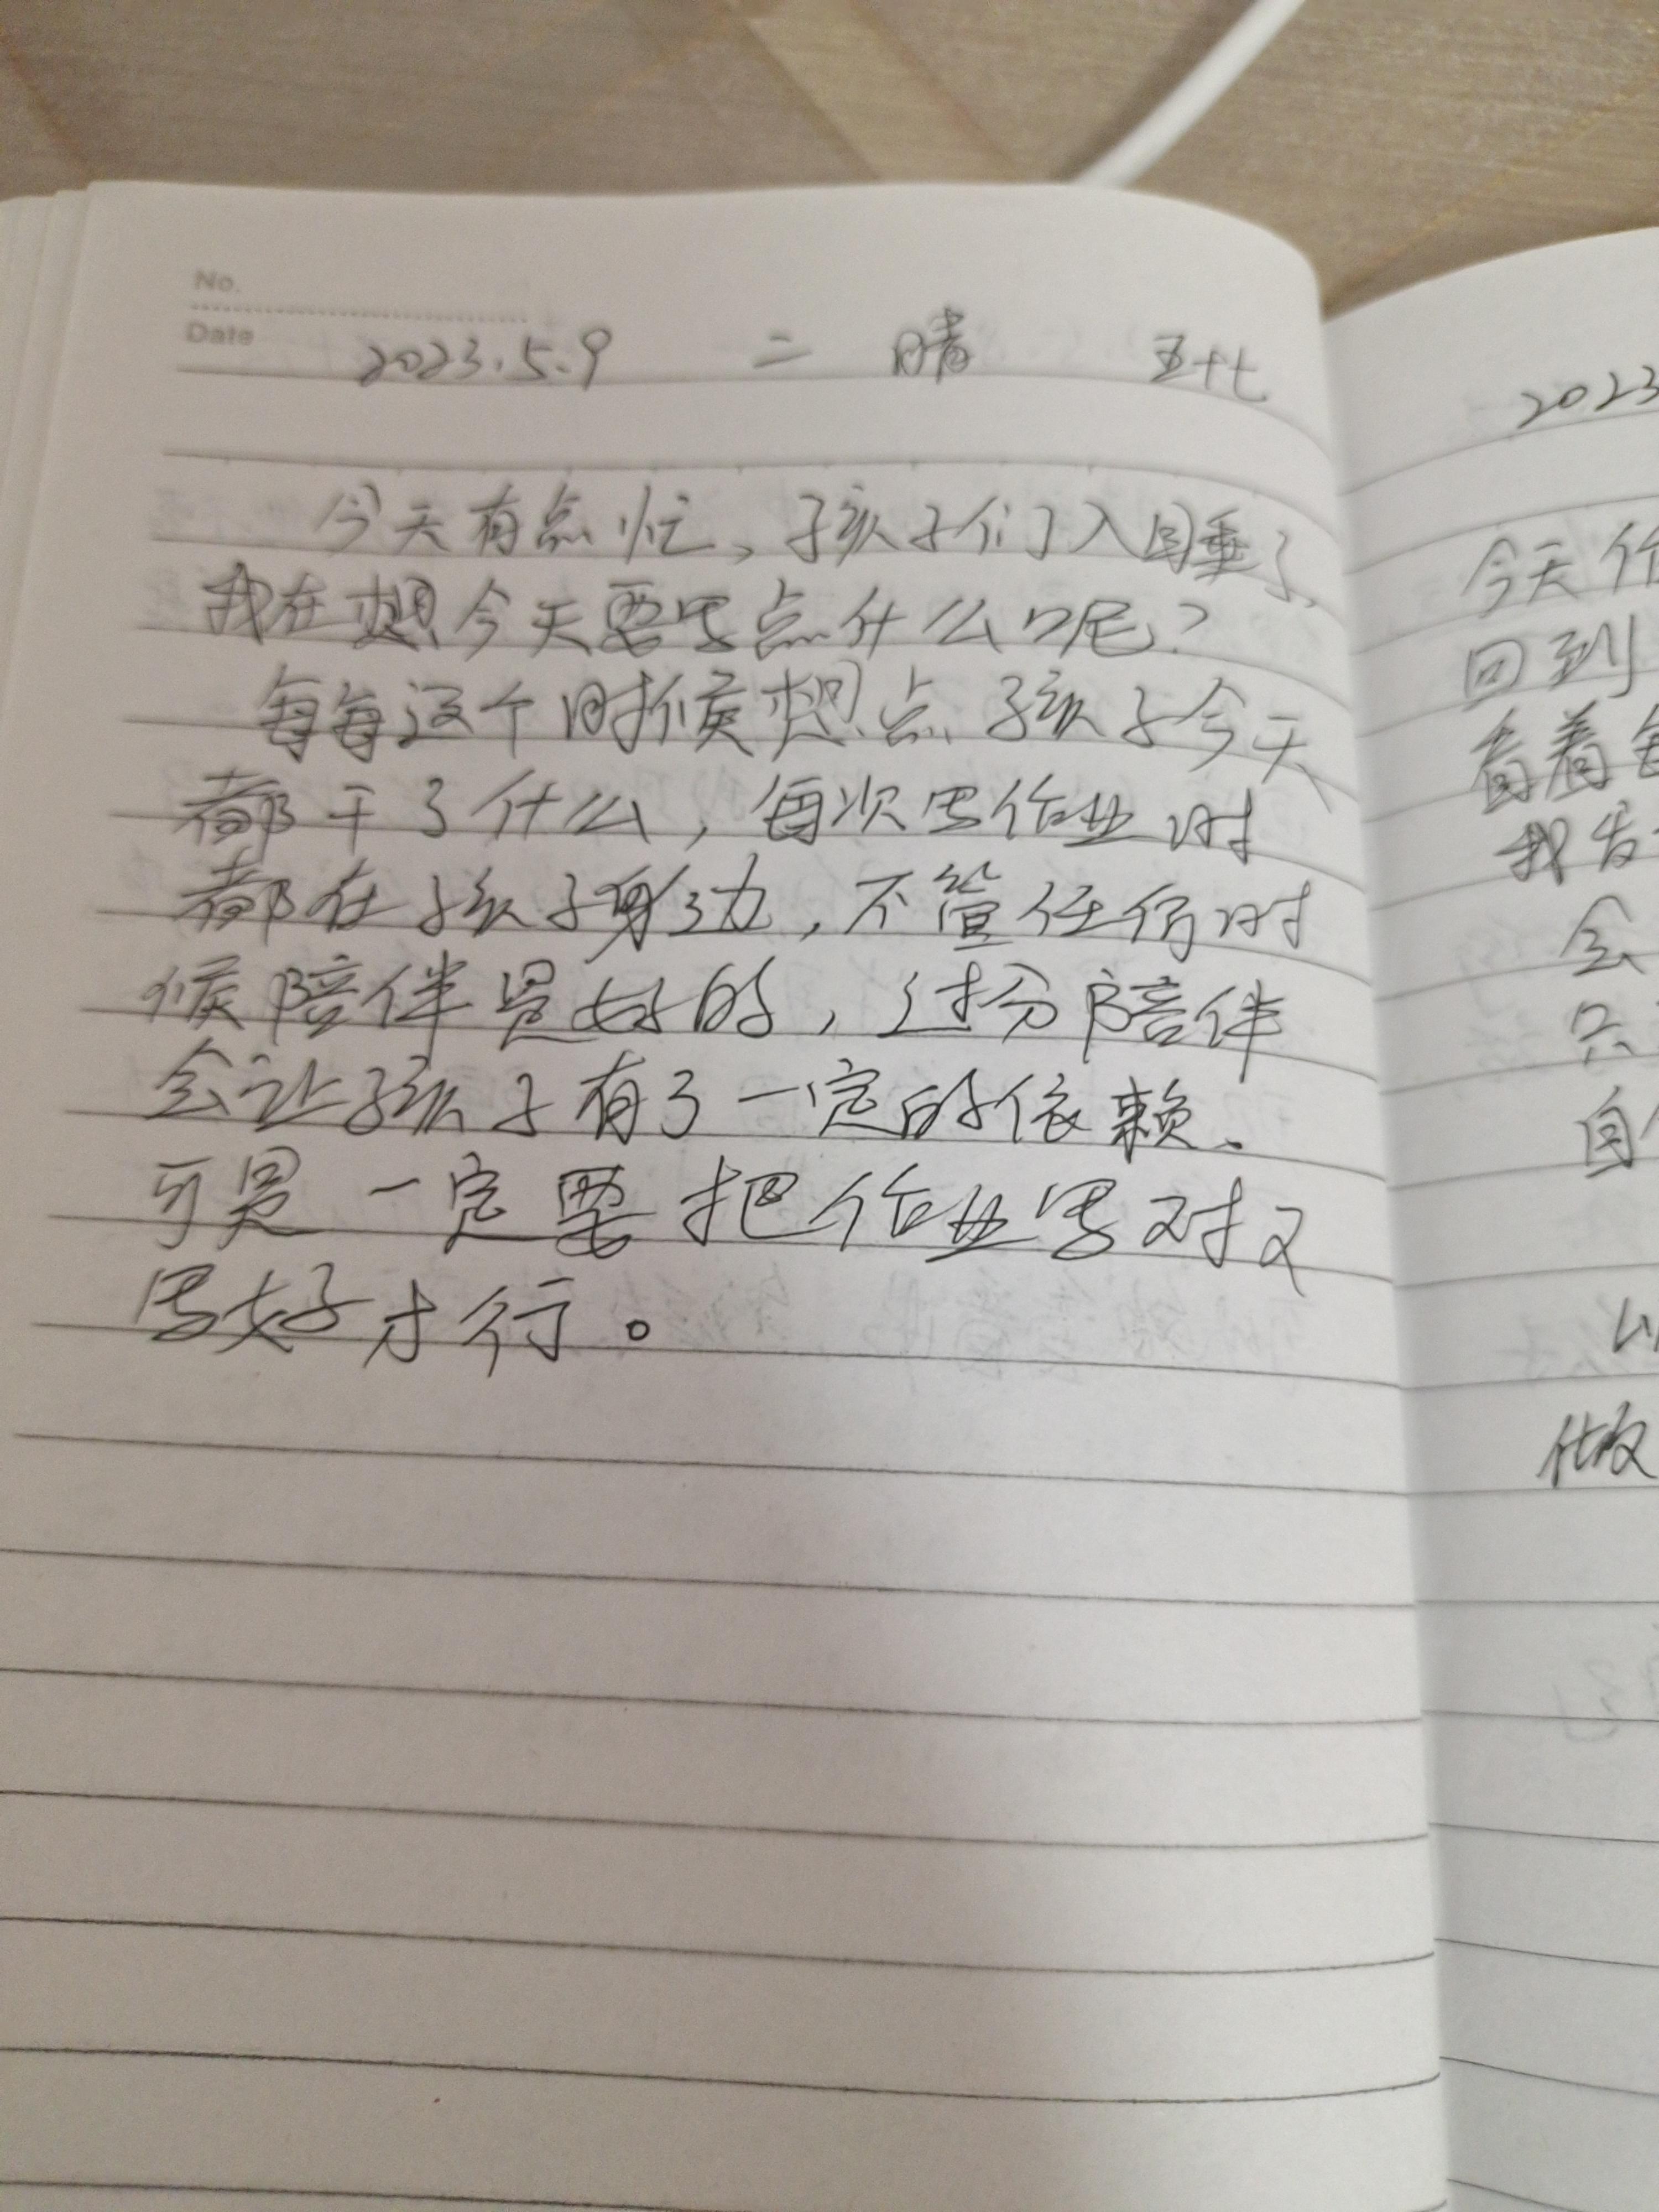 No.
Date 2023.5.9 二 晴 五十七
今天有点忙、孩子们入睡了,
我在想今天要写点什么呢?
每每这个时候想点孩子今天
都干了什么,每次写作业时
都在孩子身边,不管任何时
候陪伴是好的,过分陪伴
会让孩子有了一定的依赖、
可是一定要把作业写对又
写好才行。
2023
今天作
回到
看着每
我发
会
只
自
做